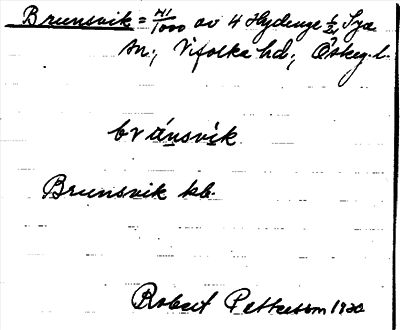 Brunsvik = 41/1000 av 4 Hydinge 1/2, Sya
sn., Vifolka hd., Östeg. l.
brúnsvìk
Brunsvik kb.
Robert Pettersson 1930